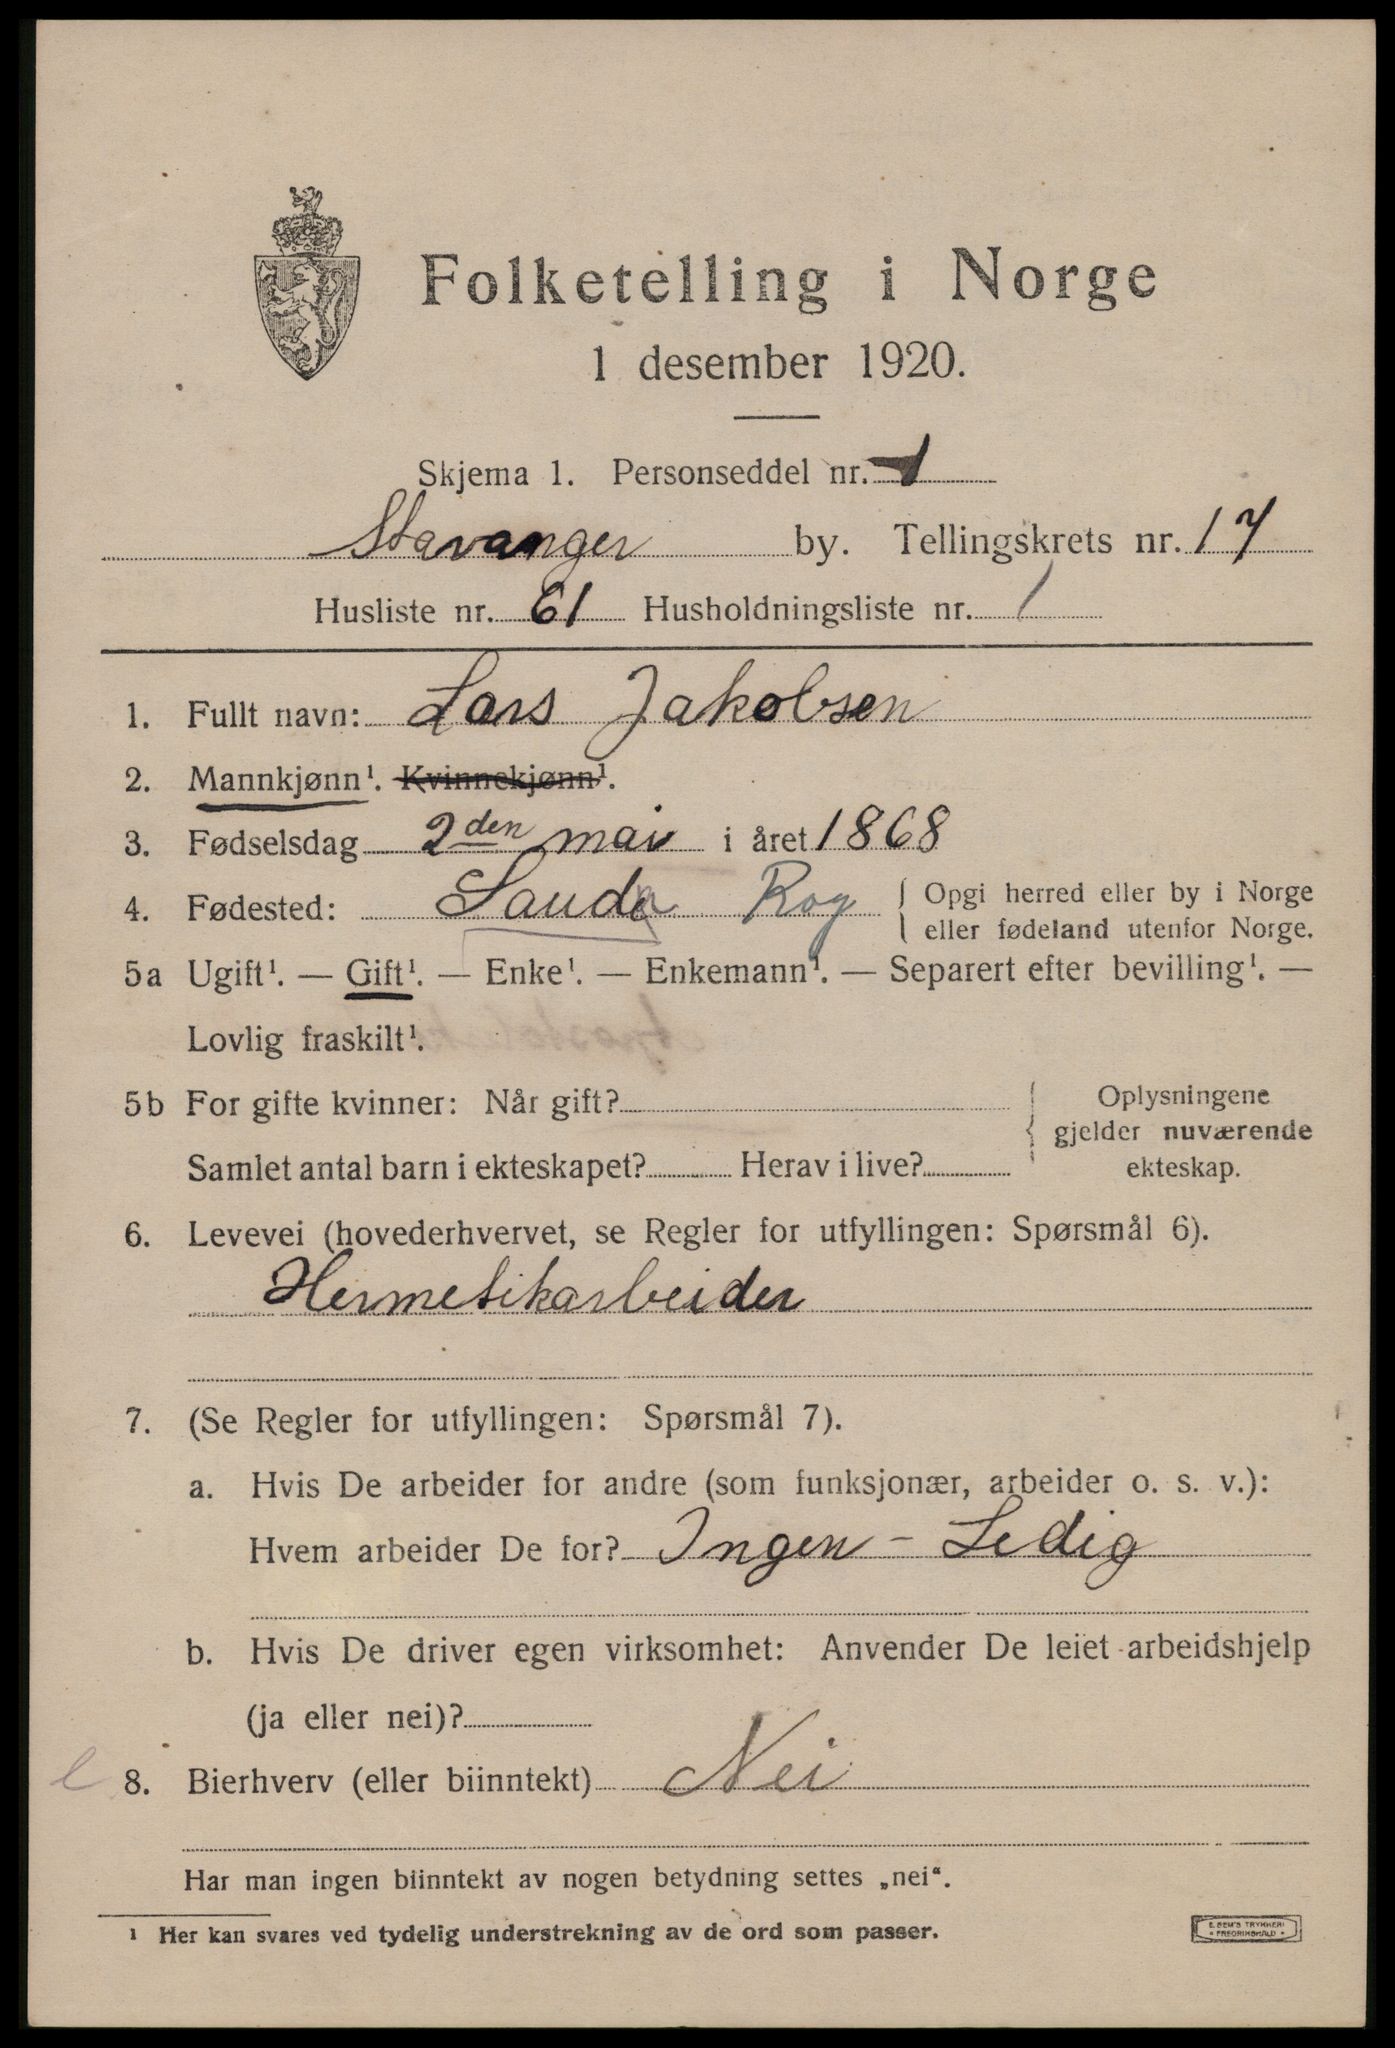 Folketelling i Norge
1 desember 1920.
Skjema 1. Personseddel nr. 1
Stavanger by. Tellingskrets nr. 17
Husliste nr. 61 Husholdningsliste nr. 1
1. Fullt navn: Lars Jakobsen
2. Mannkjønn¹. Kvinnekjønn¹.
3. Fødselsdag 2den mai i året 1868
4. Fødested: Sauda Rog { Opgi herred eller by i Norge
eller fødeland utenfor Norge.
5a Ugift¹. — Gift¹. — Enke¹. — Enkemann¹. — Separert efter bevilling¹. —
Lovlig fraskilt¹.
5b For gifte kvinner: Når gift? { Oplysningene
gjelder nuværende
Samlet antal barn i ekteskapet? Herav i live? ekteskap.
6. Levevei (hovederhvervet, se Regler for utfyllingen: Spørsmål 6).
Hermetikarbeider
7. (Se Regler for utfyllingen: Spørsmål 7).
a. Hvis De arbeider for andre (som funksjonær, arbeider o. s. v.):
Hvem arbeider De for? Ingen - Ledig
b. Hvis De driver egen virksomhet: Anvender De leiet arbeidshjelp
(ja eller nei)?
8. Bierhverv (eller biinntekt) Nei
Har man ingen biinntekt av nogen betydning settes „nei“.
¹ Her kan svares ved tydelig understrekning av de ord som passer.
E. SEM'S TRYKKERI
FREDRIKSHALD